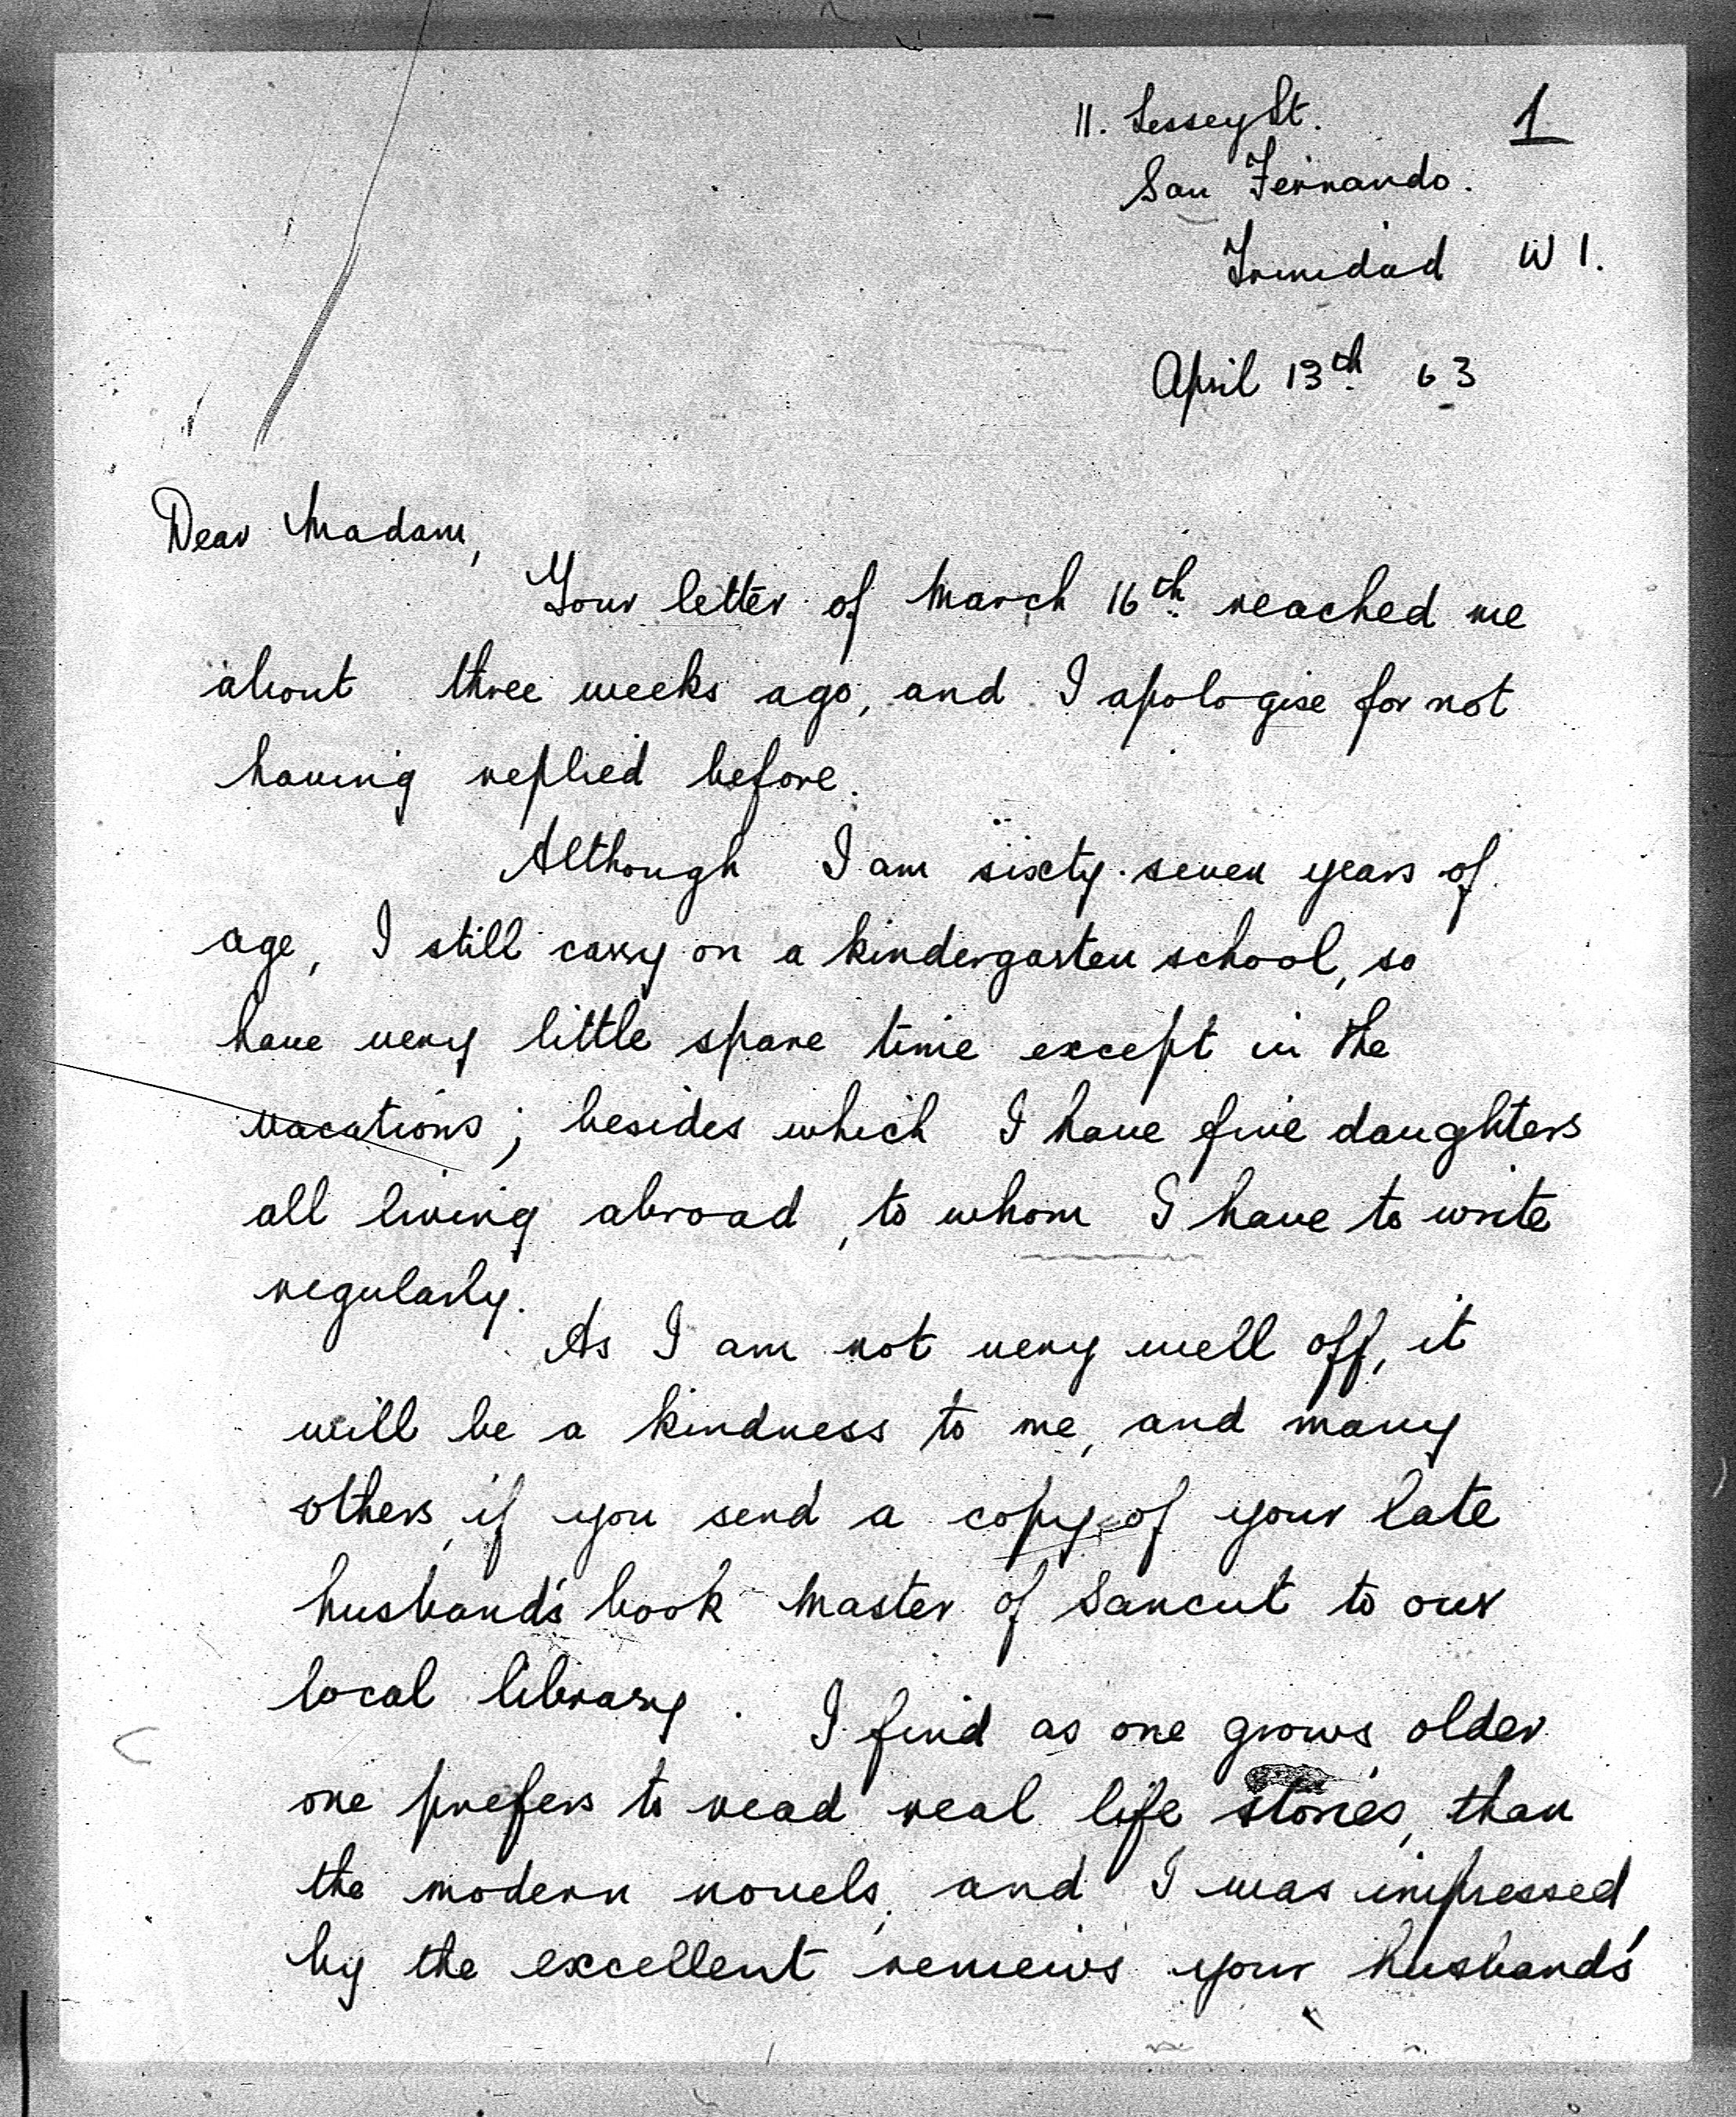 11. Lessey St. 1
San Fernando.
Trinidad W I.
April 13th 63
Dear Madam,
Your letter of March 16th reached me
about three weeks ago, and I apologise for not
having replied before.
Although I am sixty-seven years of
age, I still carry on a kindergarten school, so
have very little spare time except in the
vacations; besides which I have five daughters
all living abroad, to whom I have to write
regularly.
As I am not very well off, it
will be a kindness to me, and many
others, if you send a copy of your late
husband's book Master of Sancut to our
local library. I find as one grows older
one prefers to read real life stories, than
the modern novels, and I was impressed
by the excellent reviews your husband's